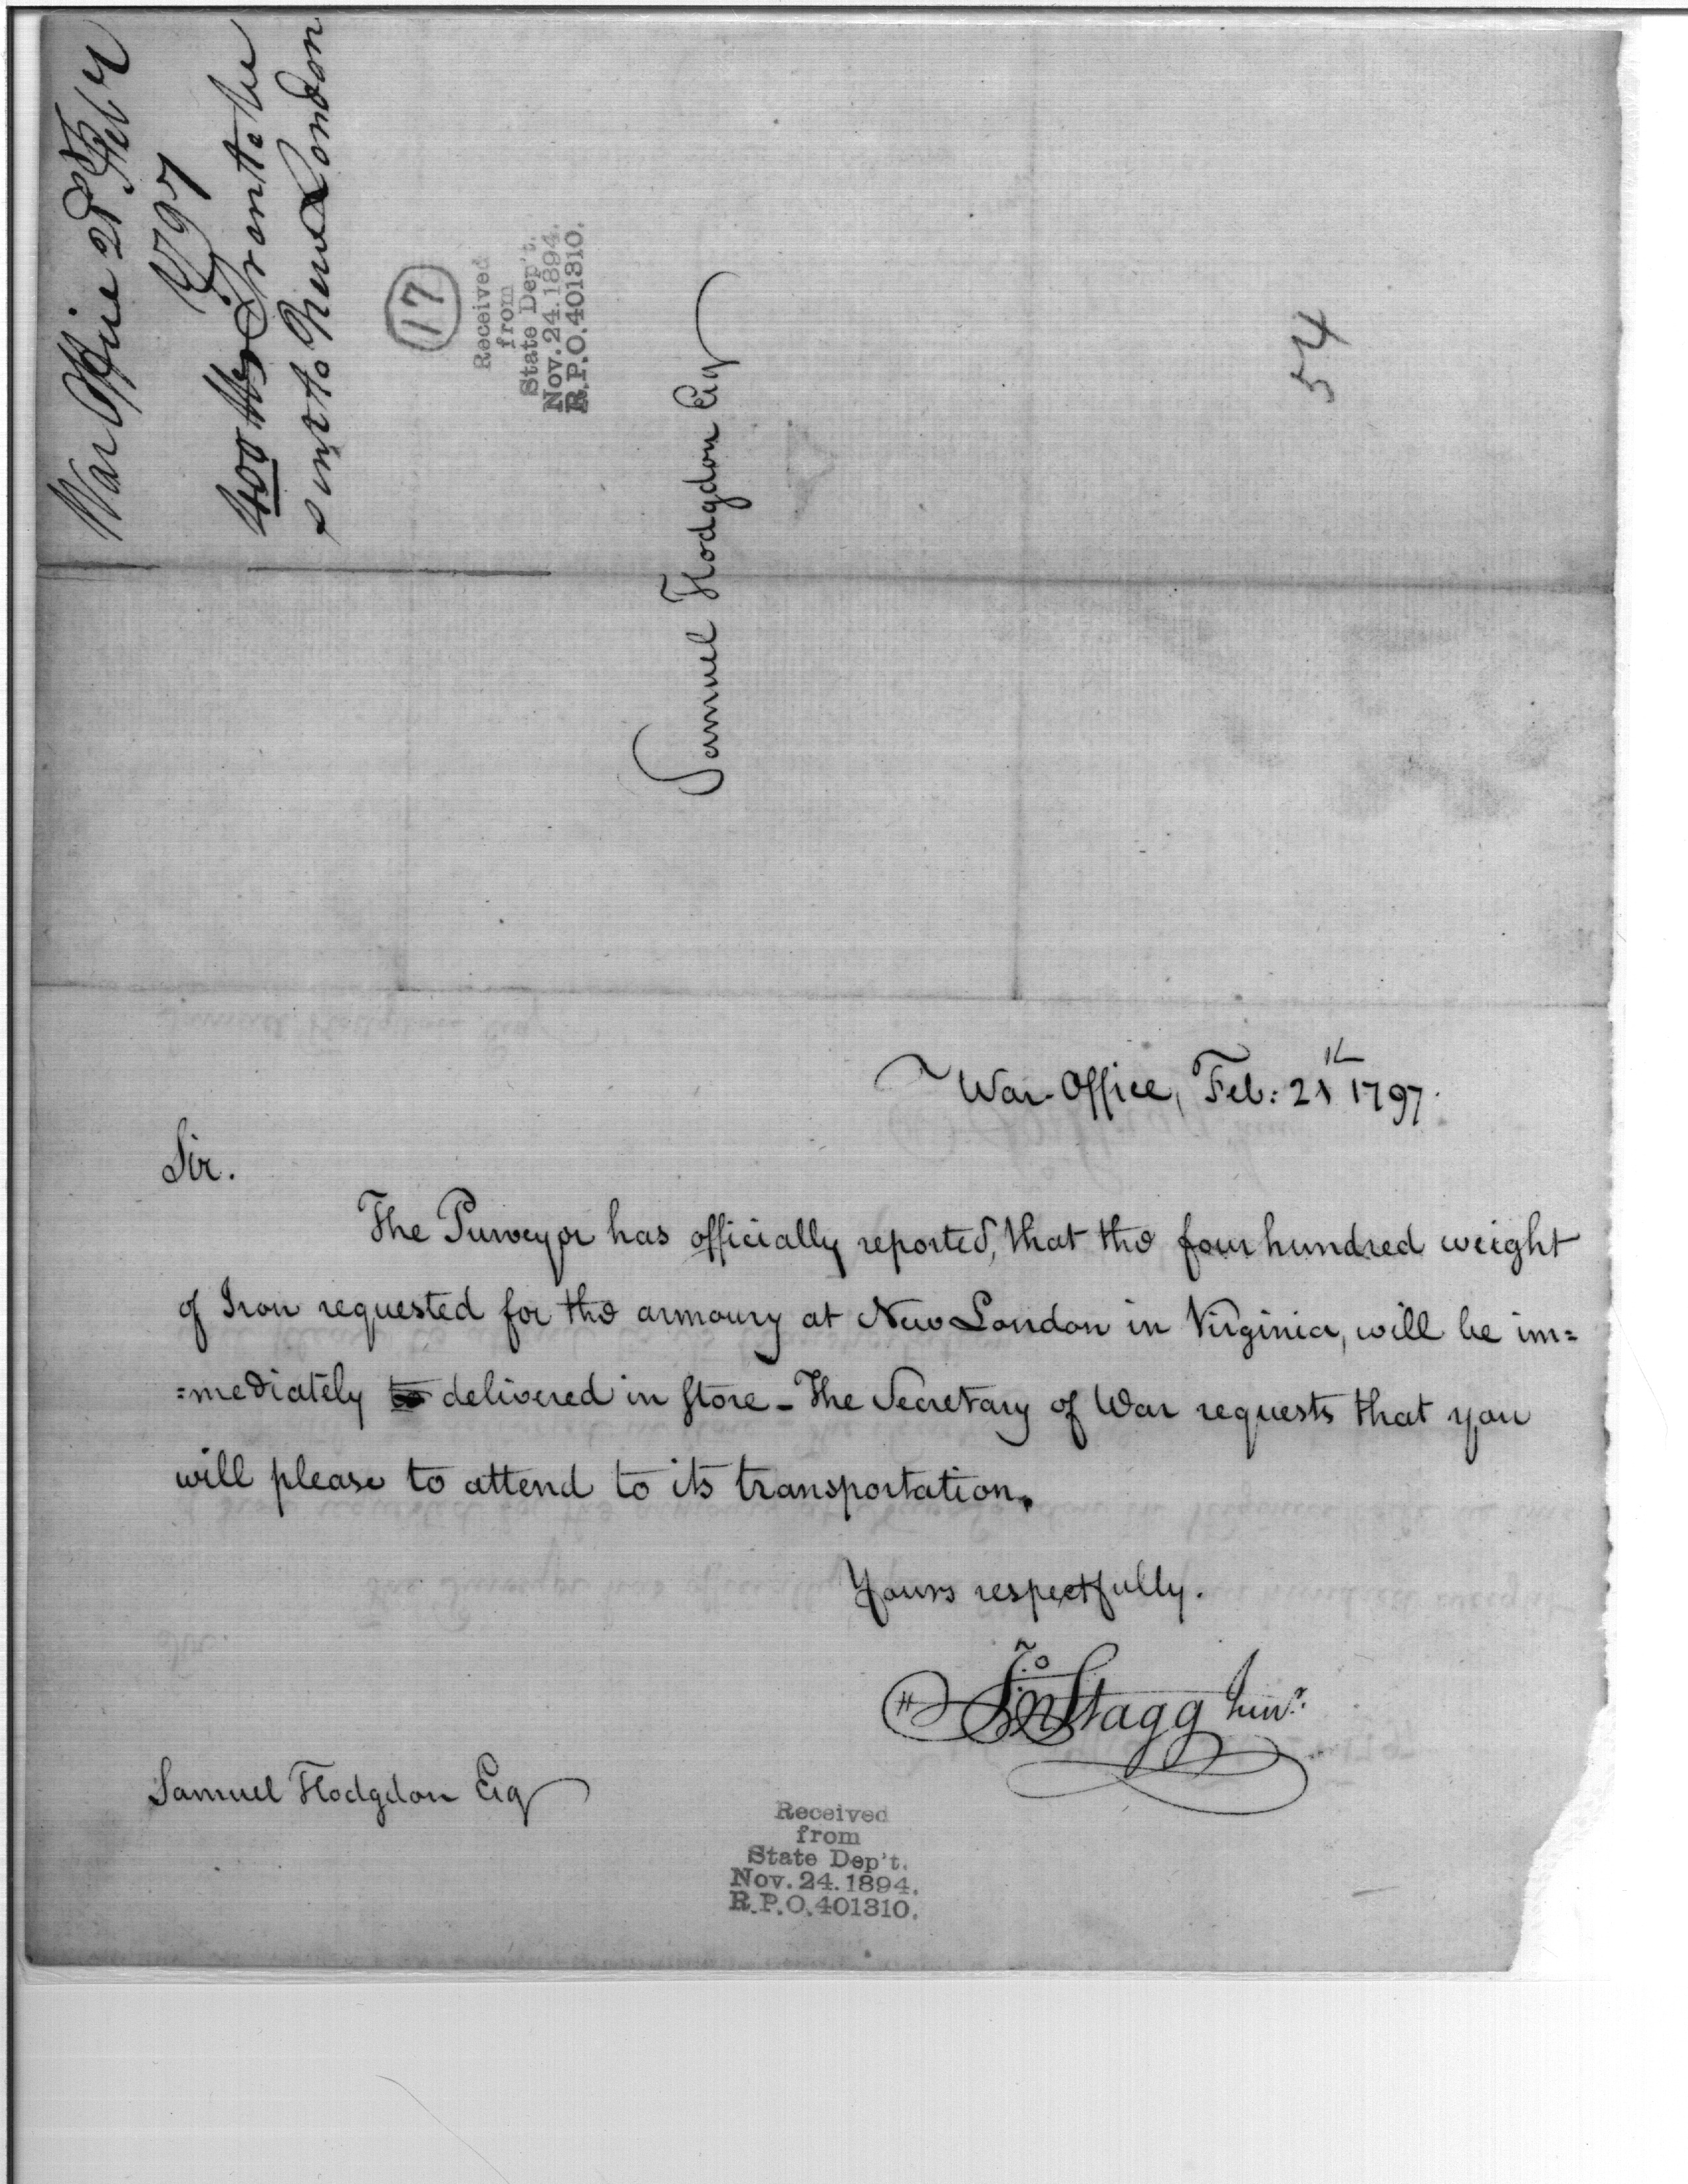 War Office 21st Feby
1797
400 lbs Iron to be
sent to New London
17
Received
from
State Dep't.
Nov. 24. 1894.
R.P.O. 401310.
Samuel Hodgdon Esq
54
War-Office, Feb: 21st 1797.
Sir.
The Purveyor has officially reported, that the four hundred weight
of Iron requested for the armoury at New London in Virginia, will be im=
=mediately delivered in store - The Secretary of War requests that you
will please to attend to its transportation.
Yours respectfully.
Jno Stagg Junr.
Samuel Hodgdon Esq
Received
from
State Dep't.
Nov. 24. 1894.
R.P.O. 401310.